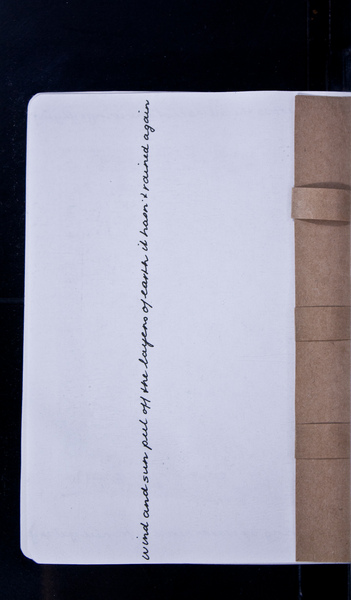 wind and sun pull off the layers of earth it hasn't rained again